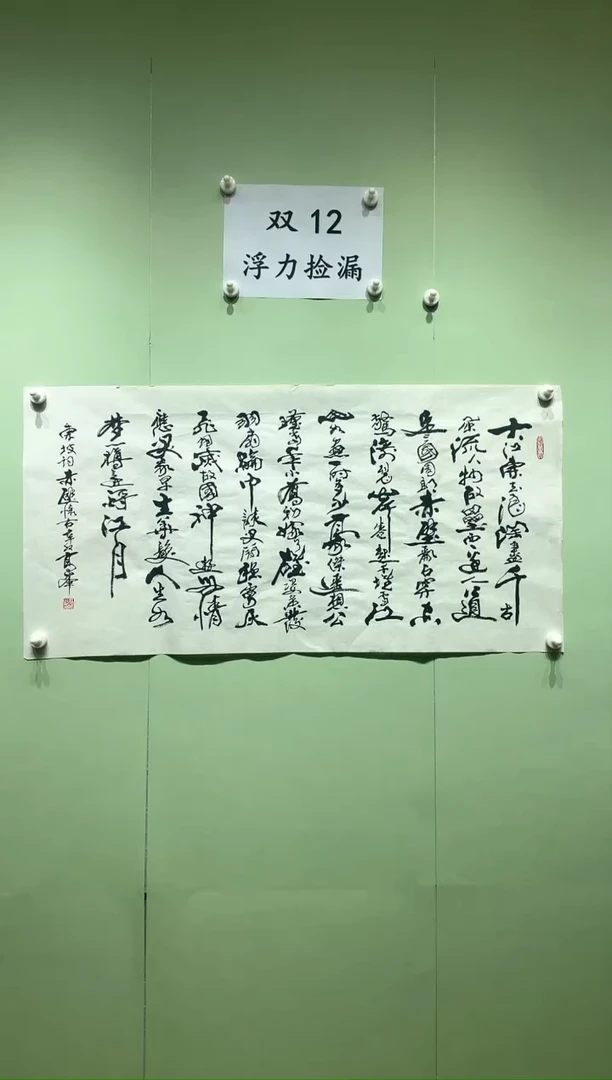 双 12
浮力捡漏
大江东去浪淘尽千古
风流人物故垒西边人道
是三國周郎赤壁乱石穿空
惊涛裂岸卷起千堆雪江
山如画一时多少豪傑遥想公
瑾当年小喬初嫁了雄姿英發
羽扇綸巾談笑间强虏灰
飞烟灭故國神遊多情
應笑我早生華髮人生如
梦一樽还酹江月
东坡词赤壁怀古